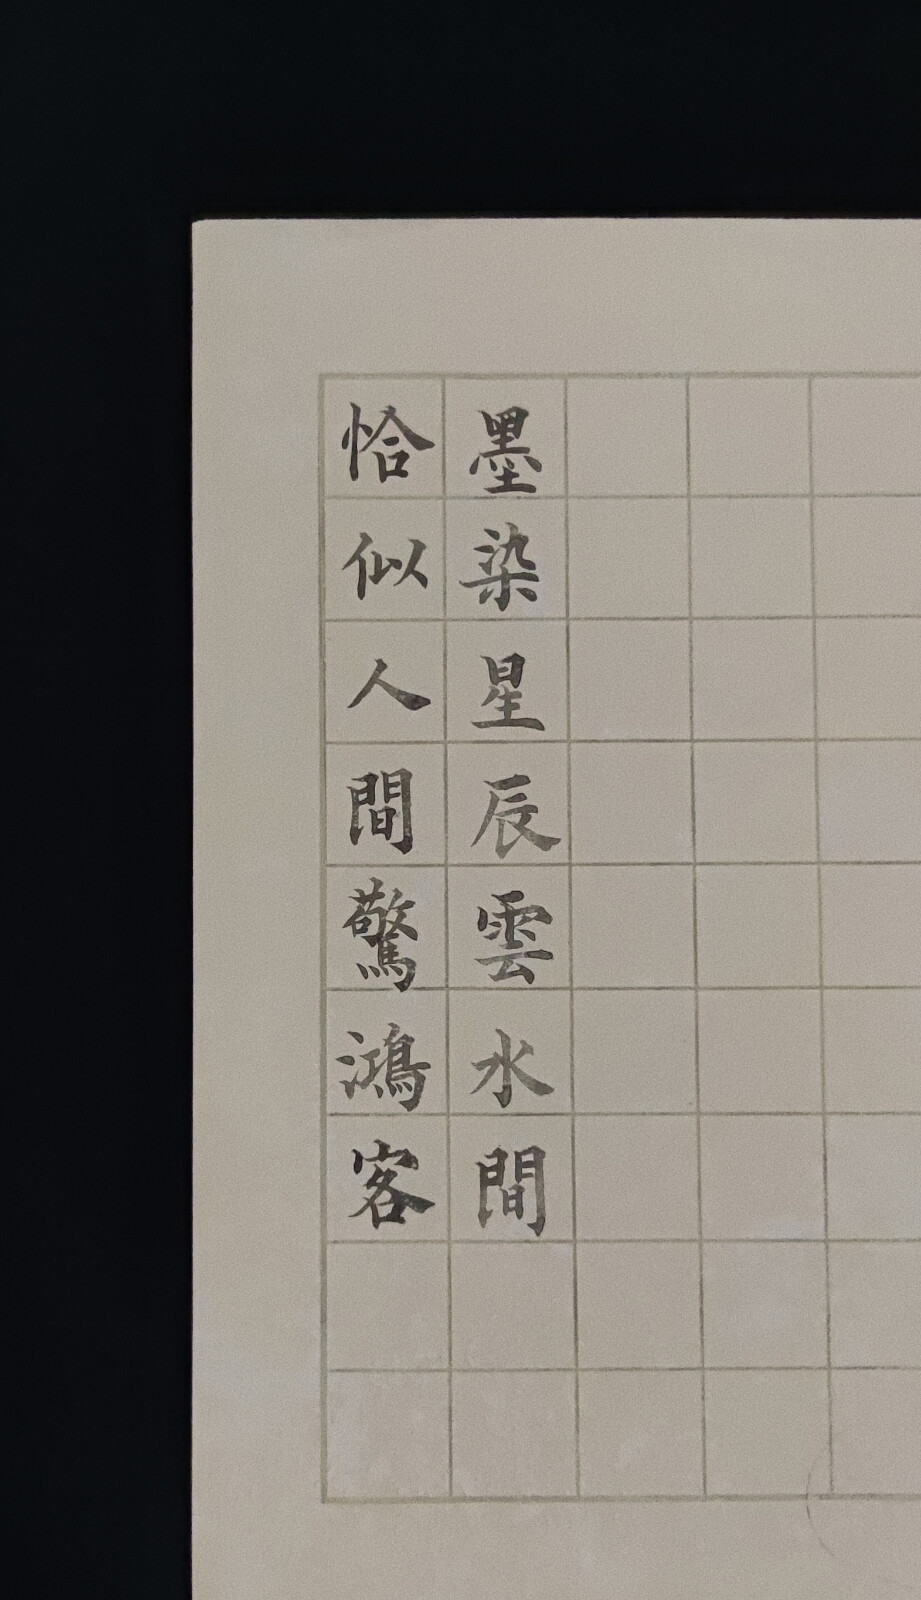 墨染星辰雲水間
恰似人間驚鴻客